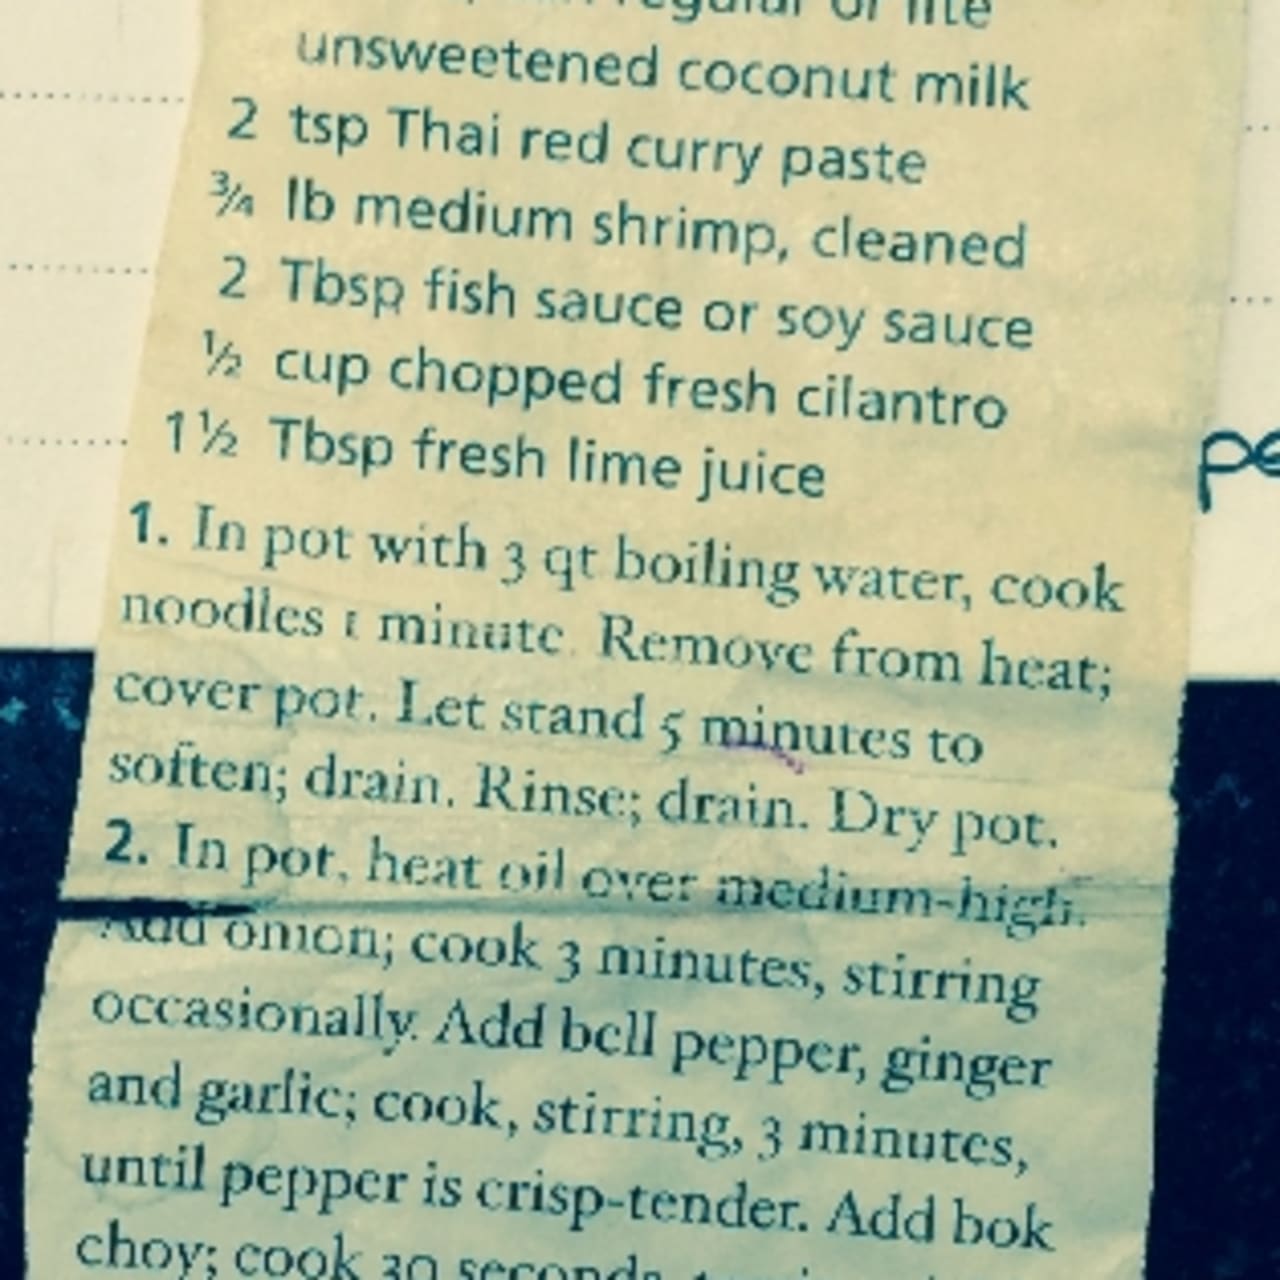 regular or lite
unsweetened coconut milk
2 tsp Thai red curry paste
¾ lb medium shrimp, cleaned
2 Tbsp fish sauce or soy sauce
½ cup chopped fresh cilantro
1½ Tbsp fresh lime juice
1. In pot with 3 qt boiling water, cook
noodles 1 minute. Remove from heat;
cover pot. Let stand 5 minutes to
soften; drain. Rinse; drain. Dry pot.
2. In pot, heat oil over medium-high.
Add onion; cook 3 minutes, stirring
occasionally. Add bell pepper, ginger
and garlic; cook, stirring, 3 minutes,
until pepper is crisp-tender. Add bok
choy; cook 30 seconds
pe